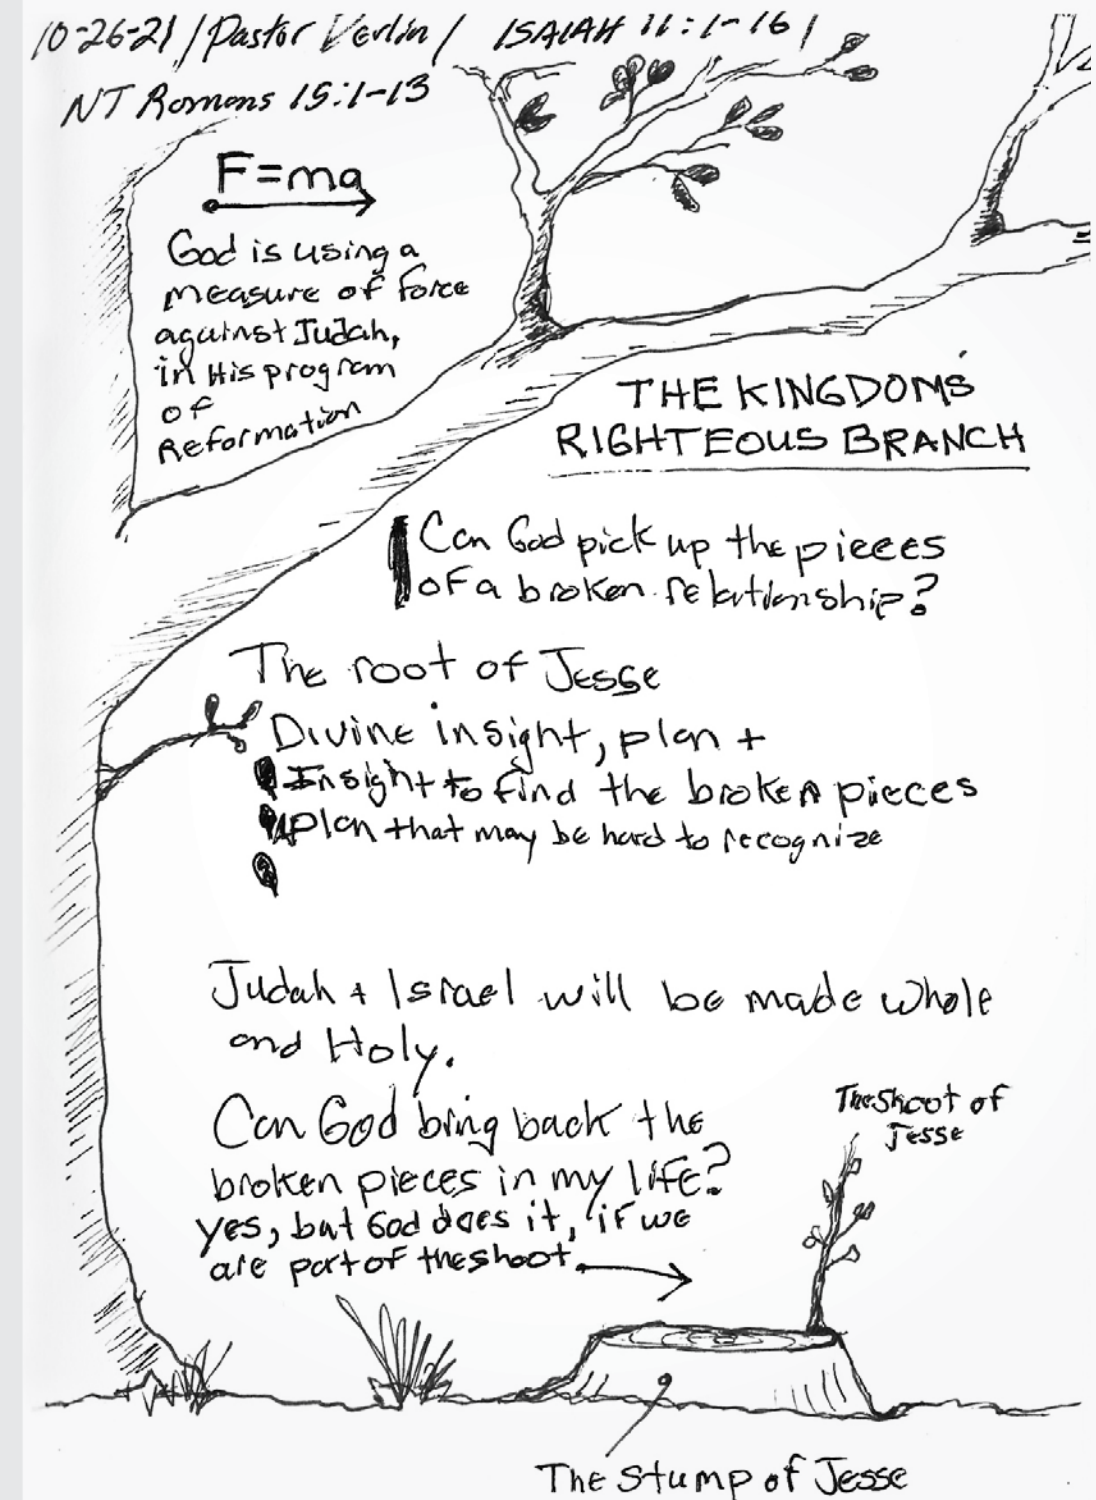 10-26-21 / Pastor Verlin / ISAIAH 11:1-16 /
NT Romans 15:1-13
F=ma
God is using a
measure of force
against Judah,
in His program
of
Reformation
THE KINGDOM'S
RIGHTEOUS BRANCH
Can God pick up the pieces
of a broken relationship?
The root of Jesse
Divine insight, plan +
Insight to find the broken pieces
plan that may be hard to recognize
Judah + Israel will be made whole
and Holy.
Can God bring back the
broken pieces in my life?
yes, but God does it, if we
are part of the shoot.
The Shoot of
Jesse
The Stump of Jesse